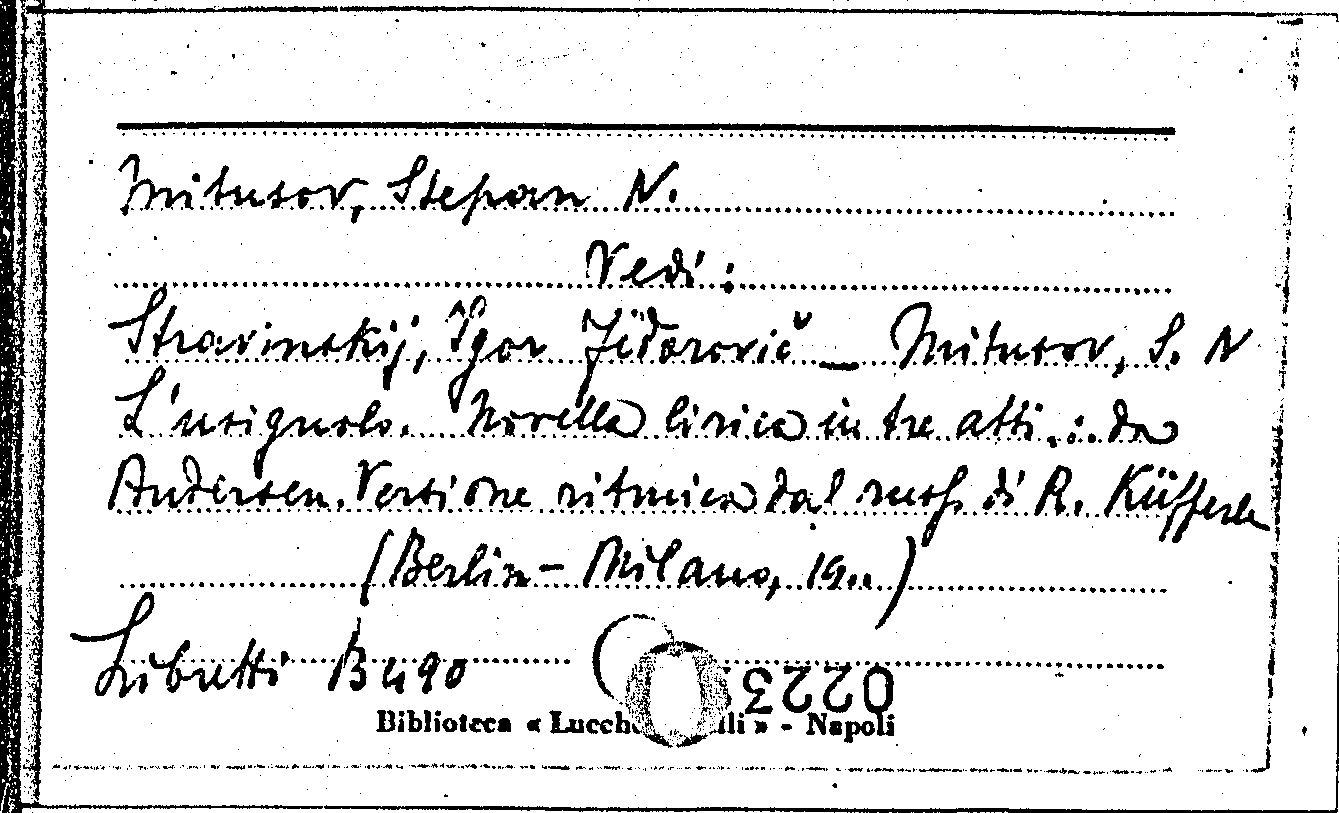 Mitusov, Stepan N.
Vedi:
Stravinskij, Igor Fëdorovič — Mitusov, S. N
L'usignolo. Novella lirica in tre atti.: da
Andersen. Versione ritmica dal russo di R. Küfferle
(Berlin - Milano, 19..)
Libretti B 490
0223
Biblioteca « » - Napoli